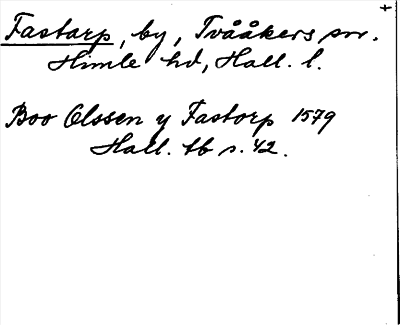 +
Fastarp, by, Tvååkers sn.
Himle hd, Hall. l.
Boo Olssen y Fastorp 1579
Hall. tb s. 42.